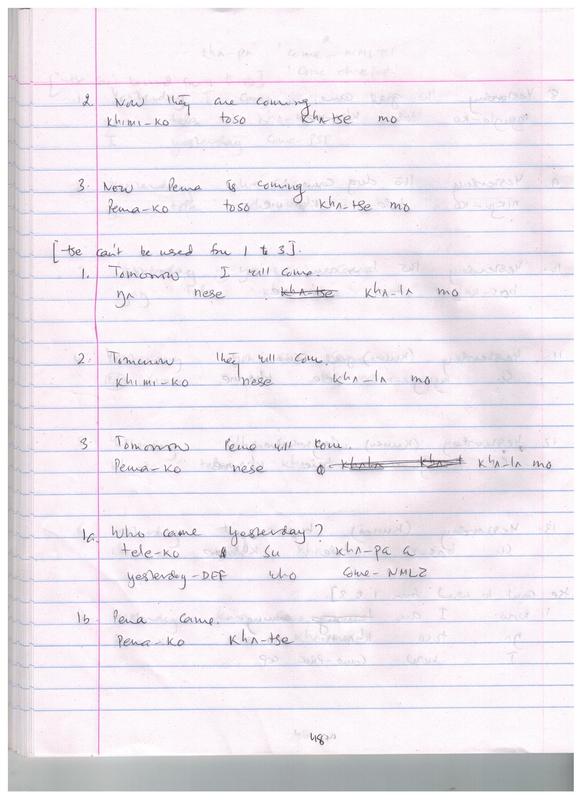 2. Now they are coming
khimi-ko toso khʌ-tse mo
3. Now Pema is coming
Pema-ko toso khʌ-tse mo
[tse can't be used for 1 to 3].
1. Tomorrow I will come.
ŋʌ nese khʌ-tse khʌ-lʌ mo
2. Tomorrow they will come.
khimi-ko nese khʌ-lʌ mo
3. Tomorrow Pema will come.
Pema-ko nese khʌ-lʌ mo
1a. Who came yesterday?
tele-ko su khʌ-pa a
yesterday-DEF who come-NMLZ
1b Pema came.
Pema-ko khʌ-tse
48